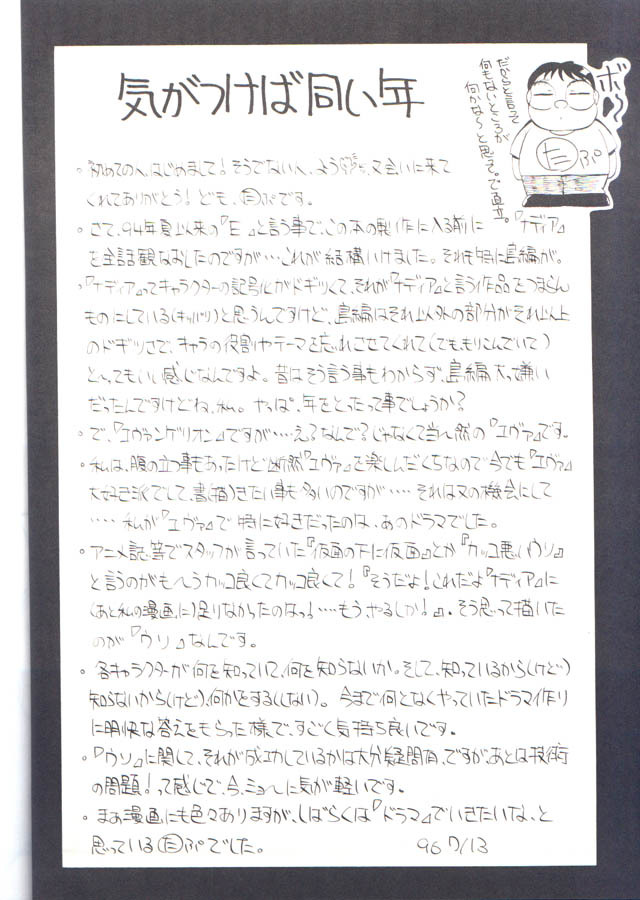 気がつけば同い年
ボ〜
だからと言って
何もないところが
何かな〜と思って。で直立。
たぷ
。初めての人、はじめまして!そうでない人、ようこそ、又会いに来て
くれてありがとう!ども、たぷです。
。さて、94年夏以来の『E』と言う事で、この本の製作に入る前に『ナディア』
を全話観なおしたのですが…これが結構いけました。それも特に島編が。
。『ナディア』ってキャラクターの記号化がドギツくて、それが『ナディア』と言う作品をつまらん
ものにしている(キッパリ)と思うんですけど、島編はそれ以外の部分がそれ以上
のドギツさで、キャラの役割やテーマを忘れさせてくれて(でも、もりこんでいて)
とってもいい感じなんですよ。昔はそう言う事もわからず、島編大っ嫌い
だったんですけどね、私。やっぱ、年をとったって事でしょうか?
。で、『エヴァンゲリオン』ですが……え?なんで?じゃなくて当然の『エヴァ』です。
。私は、腹の立つ事もあったけど断然『エヴァ』を楽しんだくちなので今でも『エヴァ』
大好き派でして、書(描)きたい事も多いのですが……それは又の機会にして
……私が『エヴァ』で特に好きだったのは、あのドラマでした。
。アニメ誌等でスタッフが言っていた『仮面の下に仮面』とか『カッコ悪いウソ』
と言うのがもへうカッコ良くてカッコ良くて!『そうだよ!これだよ『ナディア』に
(あと私の漫画に)足りなかったのはっ!……もう、やるしか!』、そう思って描いた
のが『ウソ』なんです。
。各キャラクターが何を知っていて、何を知らないか。そして、知っているから(けど)
知らないから(けど)、何かをする(しない)。今まで何となくやっていたドラマ作り
に明快な答えをもらった様で、すごく気持ち良いです。
。『ウソ』に関して、それが成功しているかは大分疑問有、ですが、あとは技術
の問題!って感じで、今、ミョ〜に気が軽いです。
。まあ漫画にも色々ありますが、しばらくは『ドラマ』でいきたいな、と
思っているたぷでした。 96 7/13